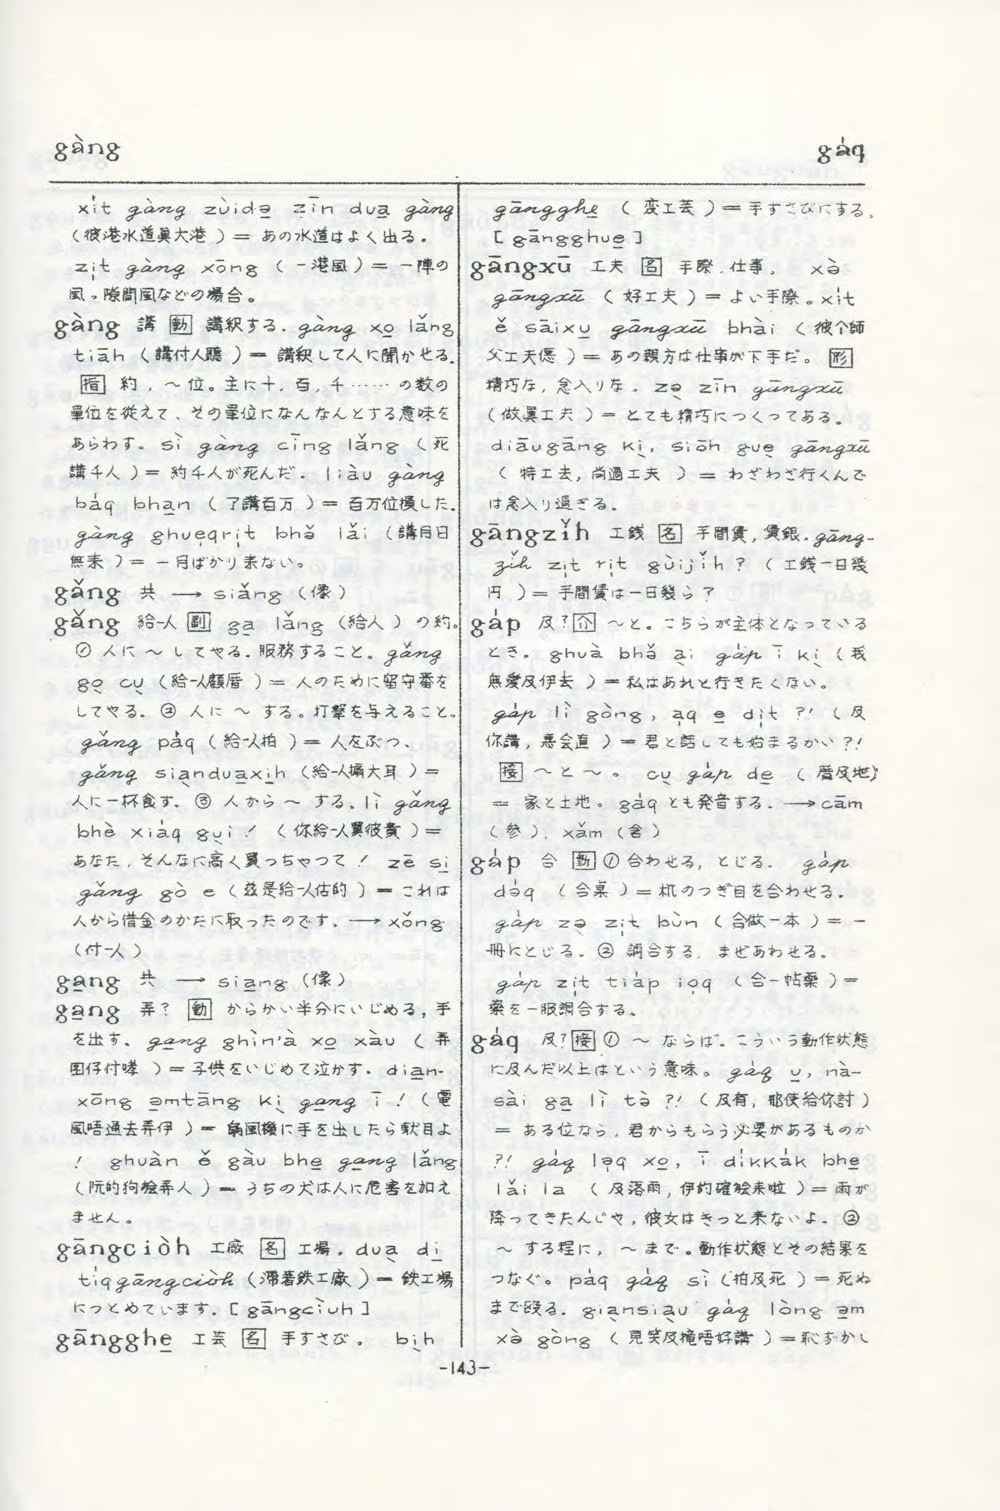 gàng
gáq
xit gàng zùidə zīn dua gàng
(彼港水道真大港) = あの水道はよく出る.
zit gàng xōng (一港風) = 一陣の
風。隙間風などの場合。
gàng 講 [動] 講釈する. gàng xo lǎng
tiāh (講付人聽) = 講釈して人に聞かせる.
[指] 約, 〜位。主に十, 百, 千…… の数の
単位を従えて、その単位になんなんとする意味を
あらわす。sì gàng cīng lǎng (死
講千人) = 約千人が死んだ. liàu gàng
báq bhan (了講百万) = 百万位損した.
gàng ghueqrit bhǒ lǎi (講月日
無来) = 一月ばかり来ない。
gǎng 共 → siǎng (像)
gǎng 給人 [副] ga lǎng (給人) の約。
① 人に 〜 してやる. 服務すること. gǎng
gə cu (給人顧厝) = 人のために留守番を
してやる. ② 人に 〜 する。打撃を与えること。
gǎng páq (給人拍) = 人をぶつ.
gǎng sianduaxih (給人搧大耳) =
人に一杯食す. ③ 人から 〜 する. lì gǎng
bhè xiáq gui! (你給人買彼貴) =
あなた, そんなに高く買っちゃって! zē si
gǎng gò e (這是給人估的) = これは
人から借金のかたに取ったのです. → xǒng
(付人)
gang 共 → siang (像)
gang 弄? [動] からかい半分にいじめる, 手
を出す. gang ghìn'à xo xàu (弄
囝仔付哮) = 子供をいじめて泣かす. dian-
xōng əmtāng ki gang ī! (電
風唔通去弄伊) = 扇風機に手を出したら駄目よ
! ghuàn ě gàu bhe gang lǎng
(阮的狗𣍐弄人) = うちの犬は人に危害を加え
ません。
gāngciòh 工廠 [名] 工場. dua di
tiq gāngciòh (滞著鉄工廠) = 鉄工場
につとめています. [gāngciùh]
gāngghe 工芸 [名] 手すさび. bih
gāngghe (変工芸) = 手すさびにする.
[gāngghue]
gāngxū 工夫 [名] 手際. 仕事. xə̀
gāngxū (好工夫) = よい手際。xit
ě sāixu gāngxū bhài (彼个師
父工夫僫) = あの親方は仕事が下手だ。[形]
精巧な, 念入りな. zə zīn gāngxū
(做真工夫) = とても精巧につくってある.
diāugāng ki, siōh gue gāngxū
(特工去, 尚過工夫) = わざわざ行くんで
は念入り過ぎる.
gāngzǐh 工銭 [名] 手間賃, 賃銀. gāng-
zǐh zit rit gùijǐh? (工銭一日幾
円) = 手間賃は一日幾ら?
gáp 及? [介] 〜と。こちらが主体となっている
とき。ghuà bhǒ ai gáp ī ki (我
無愛及伊去) = 私はあれと行きたくない。
gáp lì gòng, aq e dit?! (及
你講, 悪会直) = 君と話しても始まるかい?!
[接] 〜と〜。cu gáp de (厝及地)
= 家と土地。gáq とも発音する. → cām
(参), xǎm (含)
gáp 合 [動] ① 合わせる, とじる. gáp
dəq (合桌) = 机のつぎ目を合わせる.
gáp zə zit bùn (合做一本) = 一
冊にとじる. ② 調合する, まぜあわせる.
gáp zit tiáp ioq (合一帖薬) =
薬を一服調合する。
gáq 及? [接] ① 〜 ならば. こういう動作状態
に及んだ以上はという意味。gáq u, nà-
sài ga lì tə̀?! (及有, 那使給你討)
= ある位なら, 君からもらう必要があるものか
?! gáq ləq xo, ī dikkak bhe
lǎi la (及落雨, 伊的確𣍐来啦) = 雨が
降ってきたんじゃ, 彼女はきっと来ないよ. ②
〜 する程に, 〜 まで。動作状態とその結果を
つなぐ。páq gáq sì (拍及死) = 死ぬ
まで殴る. giansiau gáq lòng əm
xə̀ gòng (見笑及攏唔好講) = 恥ずかし
-143-